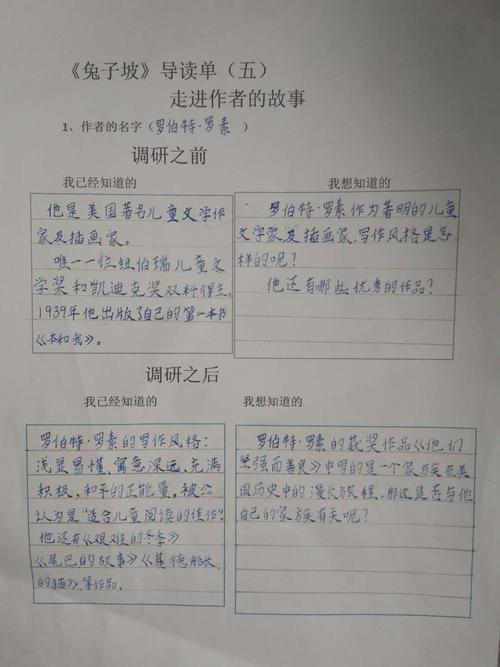 《兔子坡》导读单（五）
走进作者的故事
1、作者的名字（罗伯特·罗素 ）
调研之前
我已经知道的
他是美国著名儿童文学作
家及插画家。
唯一一位纽伯瑞儿童文
学奖和凯迪克奖双料得主.
1939年他出版了自己的第一本书
《本和我》。
我想知道的
罗伯特·罗素作为著明的儿童
文学家及插画家,写作风格是怎
样的呢?
他还有那些优秀的作品?
调研之后
我已经知道的
罗伯特·罗素的写作风格:
浅显易懂、寓意深远、充满
积极、和平的正能量,被公
认为是“适合儿童阅读的佳作”.
他还有《艰难的冬季》
《尾巴的故事》《基德船长
的猫》等作品。
我想知道的
罗伯特·罗素的获奖作品《他们
坚强而善良》中写的是一个家族在美
国历史中的漫长旅程,那这是否与他
自己的家族有关呢?